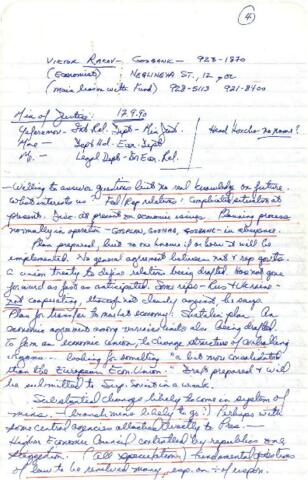 4
VICTOR RAKOV - GOSBANK - 928-1870
(Economist) NEGLINEYA ST., 12,
(main liaison with Fund) 928-5113 921-8400
Min of Justice: 12.9.90
Rel. Dept - Min Just.
Dept Hd - Ec. Dept
Legal Dept - Ec. Rel.
- Willing to answer questions but no real knowledge on future.
What interests us - Fed/Rep relations. Complicated situation at
present. at present on economic. Planning process
normally in operation - GOSPLAN, GOSSNAB, GOSBANK - in abeyance.
Plan prepared, but no one knows if or how it will be
implemented. No general agreement between nat & rep gov'ts.
A union treaty to define relations being drafted. Has not gone
forward as fast as anticipated. Some reps - & Ukraine -
not cooperating, though not clearly against, he says.
Plan for transfer to market economy: Shatalin plan. An
economic agreement among various units also being drafted.
To form an economic union, to change structure of
- looking for something "a bit more consolidated
than the European Econ. Union." Draft prepared & will
be submitted to Sup. Soviet in a week.
Substantial changes likely to come in system of
- (branch mins likely to go!) Perhaps with
some central agencies attached directly to Pres -
Higher Economic Council controlled by republics
suggestion. (All speculation) Fundamental questions
of law to be resolved many, esp. on of respon.